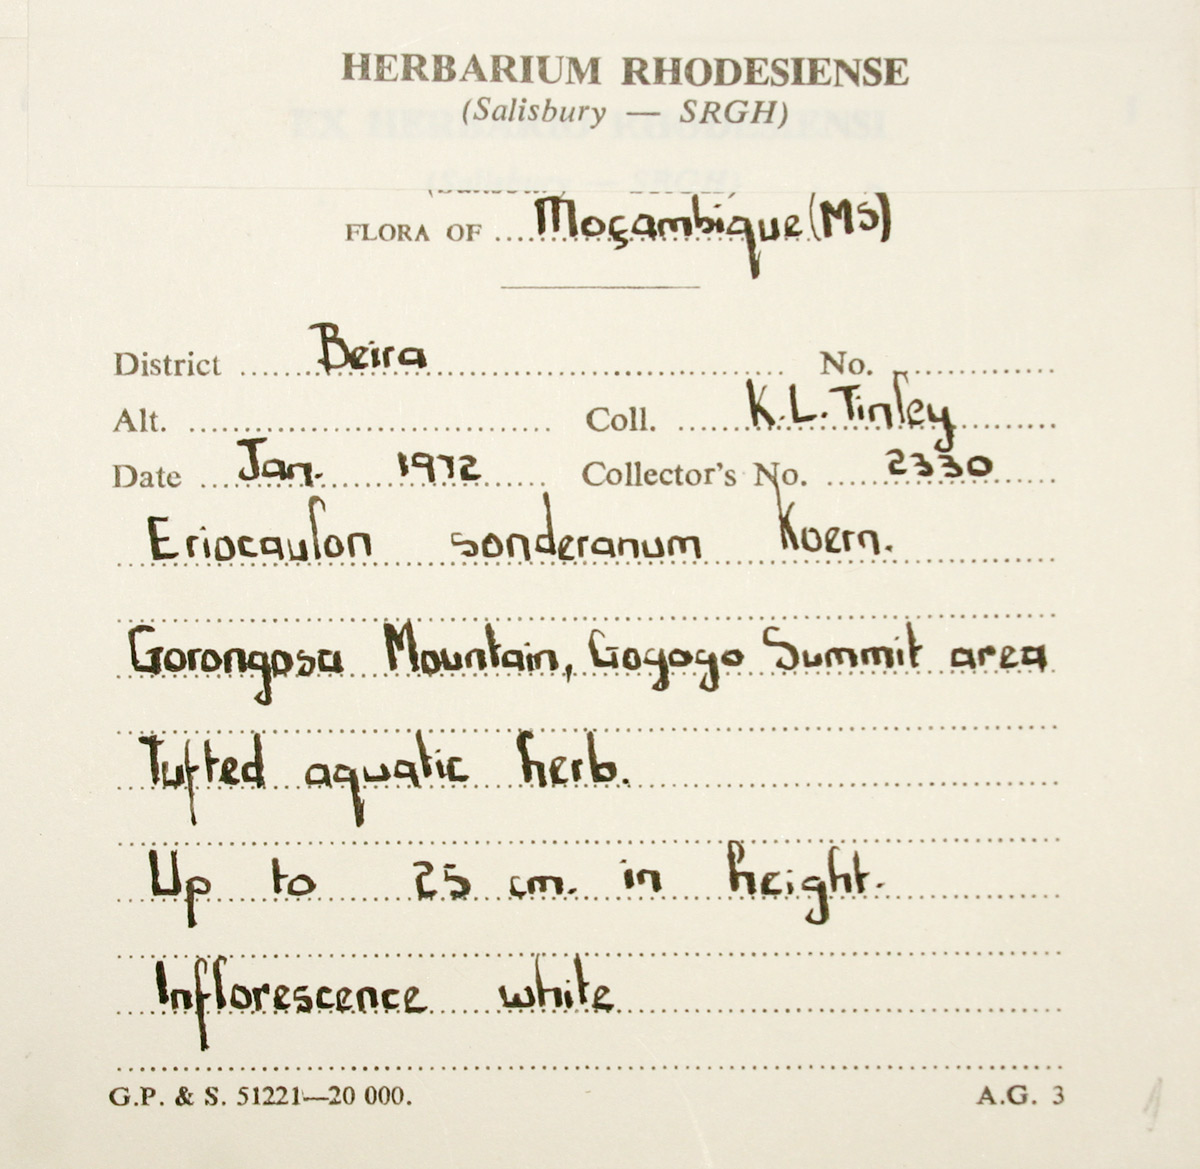 HERBARIUM RHODESIENSE
(Salisbury — SRGH)
FLORA OF Moçambique (MS)
District Beira No.
Alt. Coll. K.L. Tinley
Date Jan. 1972 Collector's No. 2330
Eriocaulon sonderanum Koern.
Gorongosa Mountain, Gogogo Summit area
Tufted aquatic herb.
Up to 25 cm. in height.
Inflorescence white
G.P. & S. 51221—20 000. A.G. 3